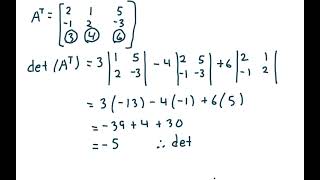 Aᵀ = [2 1 5
-1 2 -3
3 4 6]
det (Aᵀ) = 3 |1 5; 2 -3| - 4 |2 5; -1 -3| + 6 |2 1; -1 2|
= 3(-13) - 4(-1) + 6(5)
= -39 + 4 + 30
= -5 ∴ det